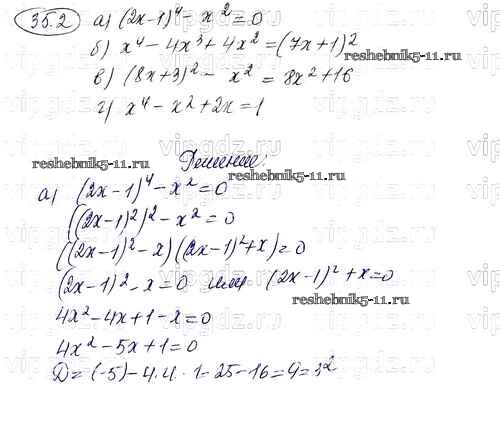 35.2 а) (2x-1)⁴ - x² = 0
б) x⁴ - 4x³ + 4x² = (7x+1)²
в) (8x+3)² - x² = 8x² + 16
г) x⁴ - x² + 2x = 1
reshebnik5-11.ru
reshebnik5-11.ru
Решение:
reshebnik5-11.ru
а) (2x-1)⁴ - x² = 0
((2x-1)²)² - x² = 0
((2x-1)² - x)((2x-1)² + x) = 0
(2x-1)² - x = 0 или (2x-1)² + x = 0
reshebnik5-11.ru
4x² - 4x + 1 - x = 0
4x² - 5x + 1 = 0
D = (-5) - 4.4. · 1 - 25 - 16 = 9 = 3²